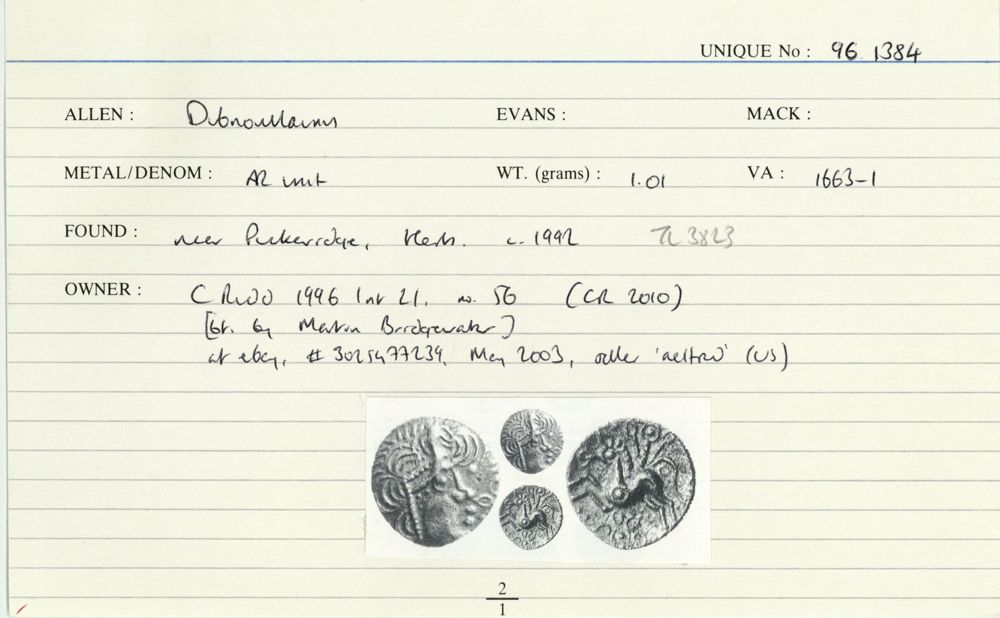 UNIQUE No : 96.1384
ALLEN : Dubnovellaunus EVANS : MACK :
METAL/DENOM : AR unit WT. (grams) : 1.01 VA : 1663-1
FOUND : near Puckeridge, Herts. c. 1992 TL 3823
OWNER : C Rudd 1996 list 21. no. 56 (CR 2010)
[bt. by Martin Bridgewater]
at ebay, # 3025477239, May 2003, seller (US)
2
1